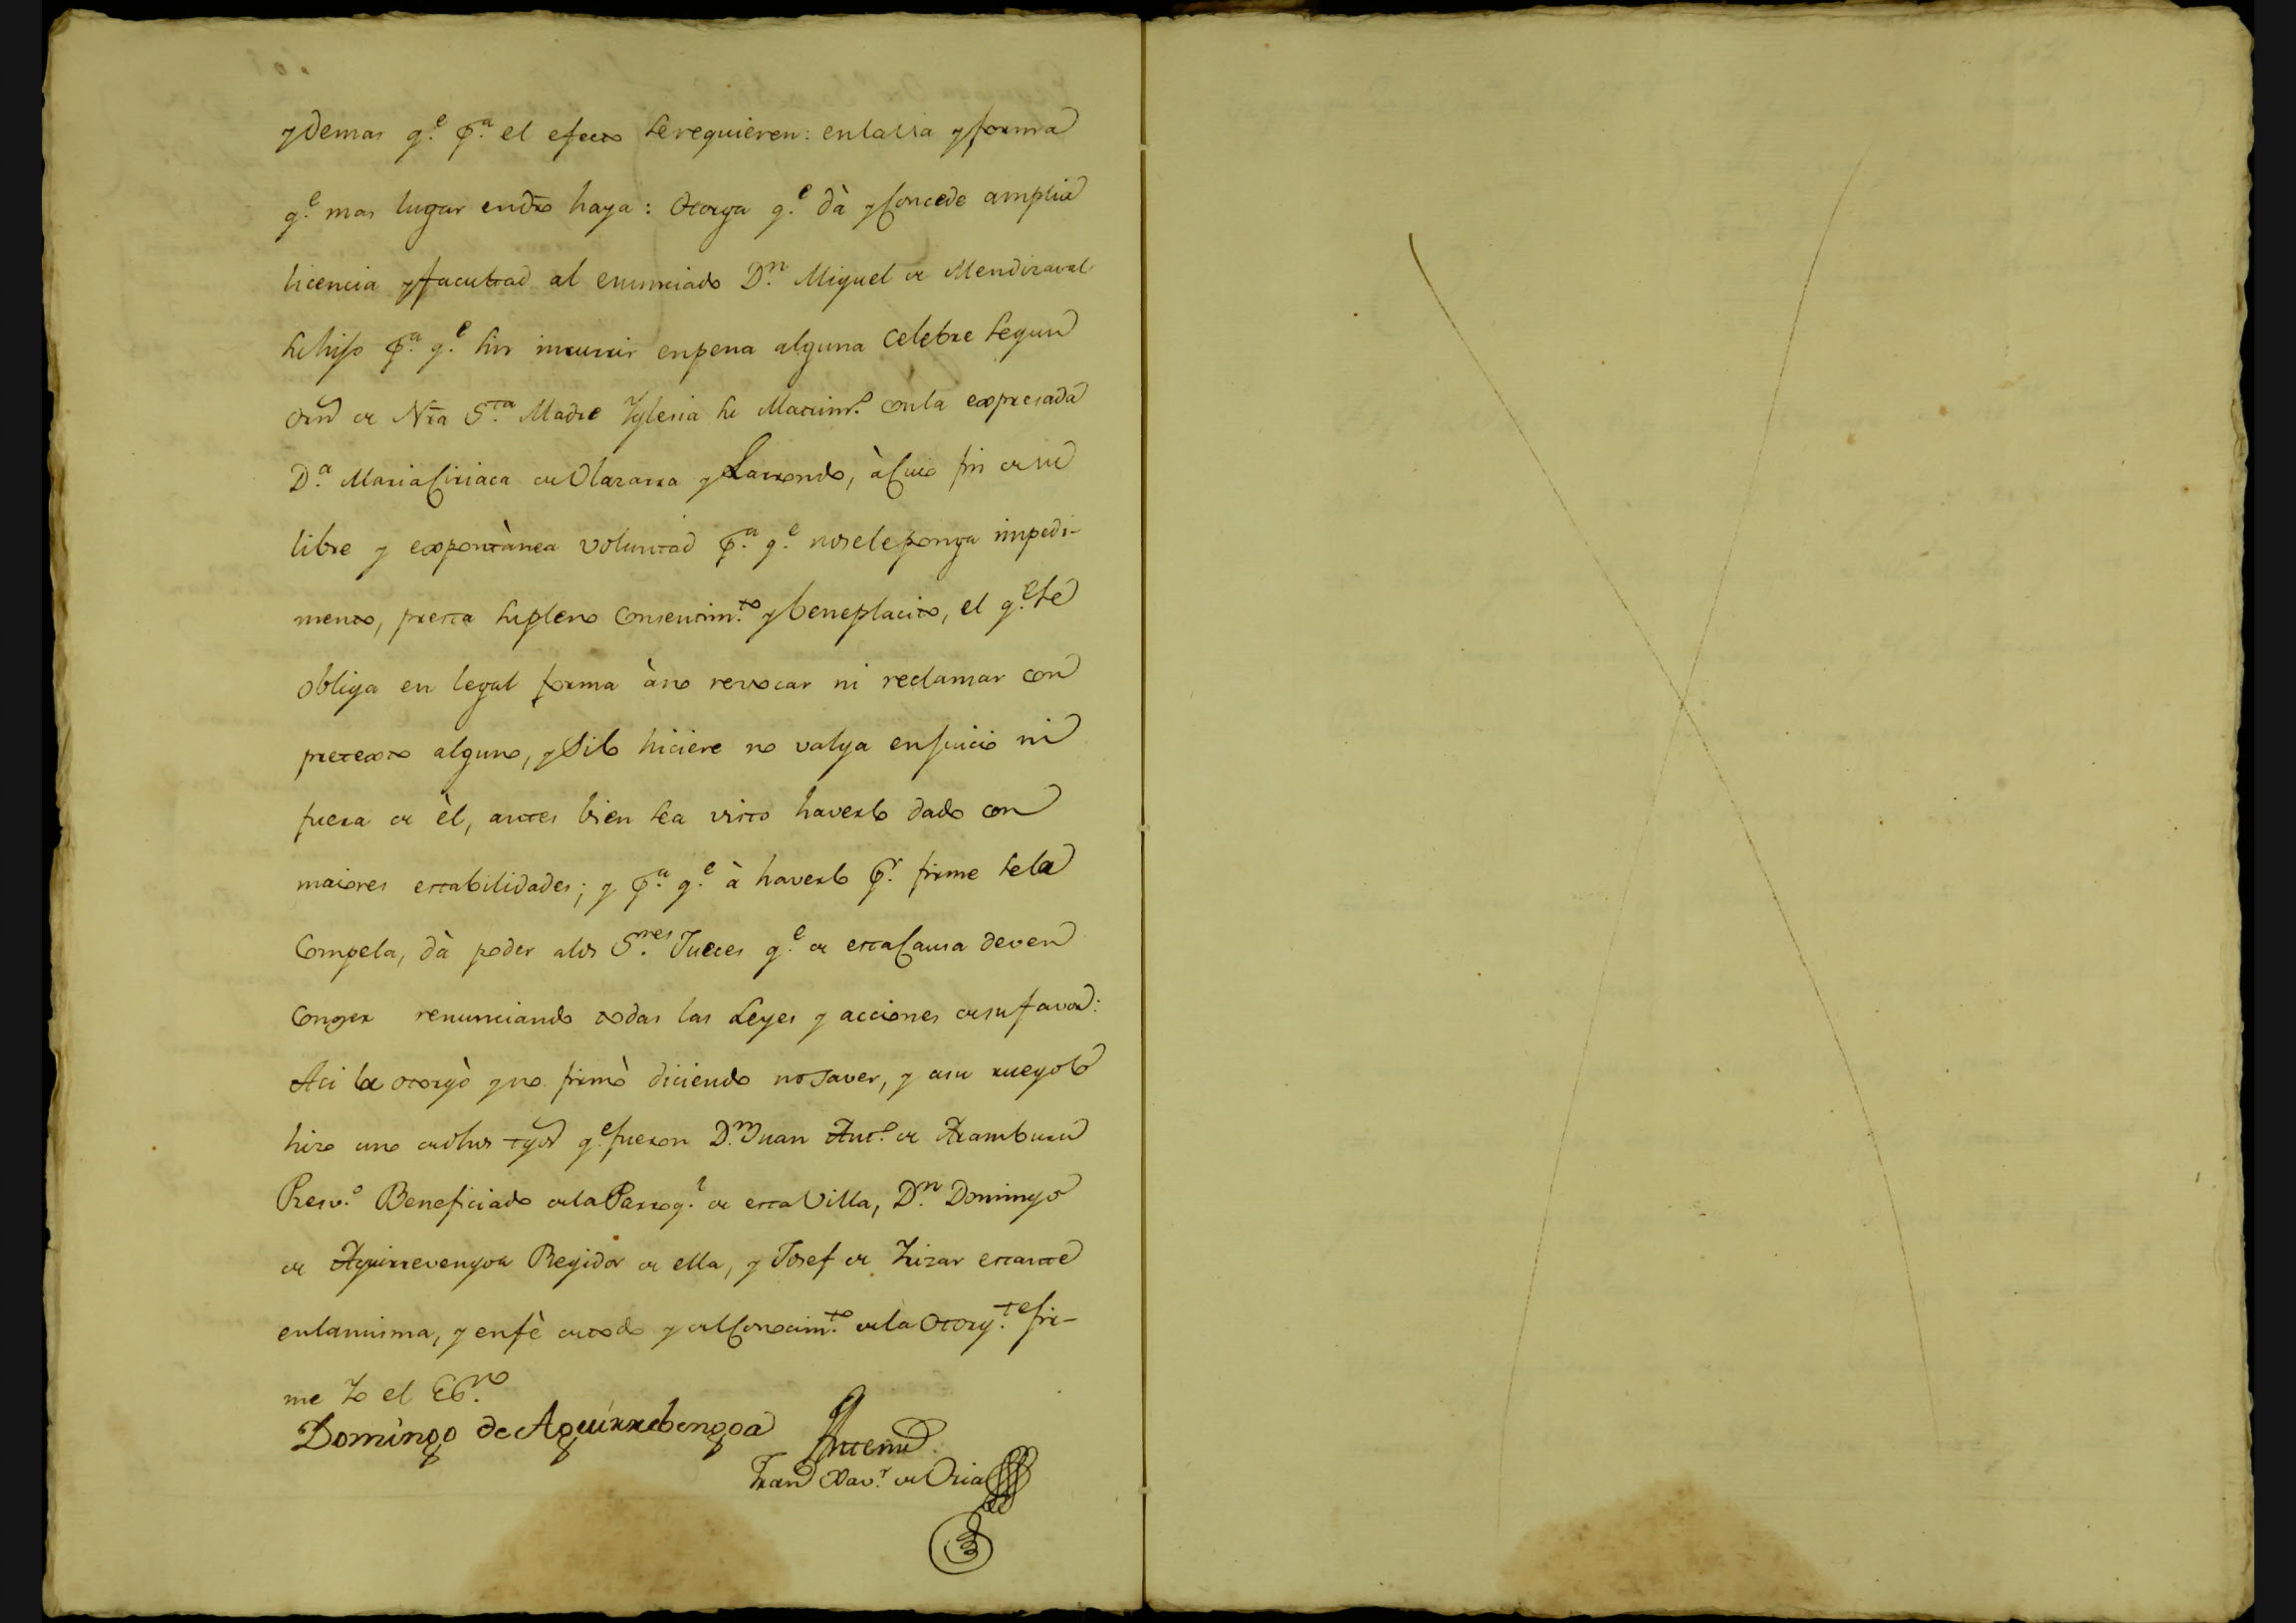 y demas q.e p.a el efecto se requieren: en la via y forma
q.e mas lugar en dro haya: otorga q.e dà y Concede amplia
licencia y facultad al enunciado D.n Miguel de Mendizaval
su hijo p.a q.e sin incurrir en pena alguna Celebre segun
orn de Nra S.ta Madre Yglesia su Matrim.o con la expresada
D.a Maria Ciriaca de Olazarra y Larrondo, à Cuio fin de su
libre y expontànea voluntad p.a q.e no se le ponga impedi-
mento, presta su pleno Consentim.to y beneplacito, el q.e se
obliga en legal forma à no revocar ni reclamar con
pretexto alguno, y Si lo hiciere no valga en juicio ni
fuera de èl, antes bien sea visto haverlo dado con
maiores estabilidades; y p.a q.e à haverlo p.r firme se la
Compela, dà poder a los S.res Jueces q.e de esta Causa deven
Conozer renunciando todas las Leyes y acciones de su favor:
Asi la otorgò y no firmò diciendo no saver, y a su ruego lo
hizo uno de dhos tgos q.e fueron D.n Juan Ant.o de Aramburu
Presv.o Beneficiado de la Parroq.l de esta Villa, D.n Domingo
de Aguirrevengoa Regidor de ella, y Josef de Yrizar estante
en la misma, y en fè de todo y del Conocim.to de la Otorg.te fir-
me Yo el Esno
Domingo de Aguirrebengoa
Ante mi
Fran Xav.r de Oria